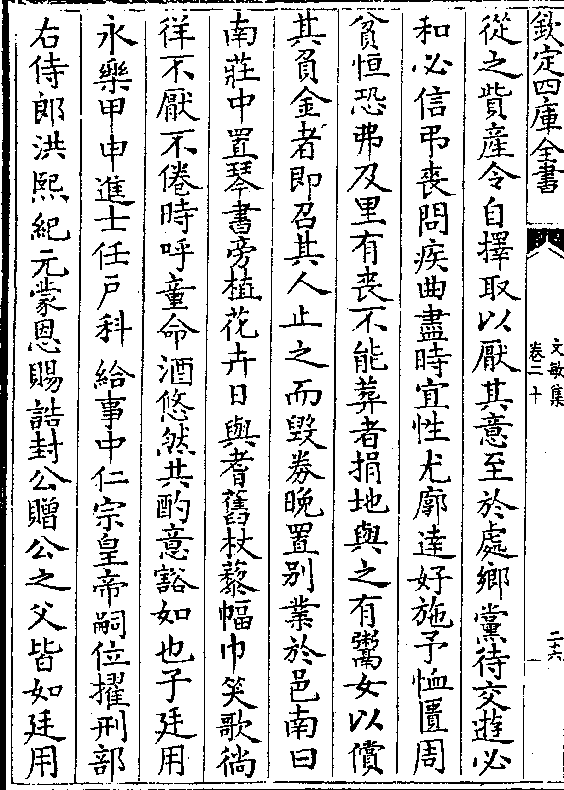 欽定四庫全書
文敏集
卷二十
二六
從之貲產令自擇取以厭其意至於處鄉黨待交遊必
和必信弔喪問疾曲盡時宜性尤廓達好施予恤匱周
貧恒恐弗及里有喪不能葬者捐地與之有鬻女以償
其負金者即召其人止之而毀券晚置别業於邑南曰
南莊中置琴書旁植花卉日與耆舊杖藜幅巾笑歌徜
徉不厭不倦時呼童命酒悠然共酌意豁如也子廷用
永樂甲申進士任戶科給事中仁宗皇帝嗣位擢刑部
右侍郎洪熙紀元蒙恩賜誥封公贈公之父皆如廷用